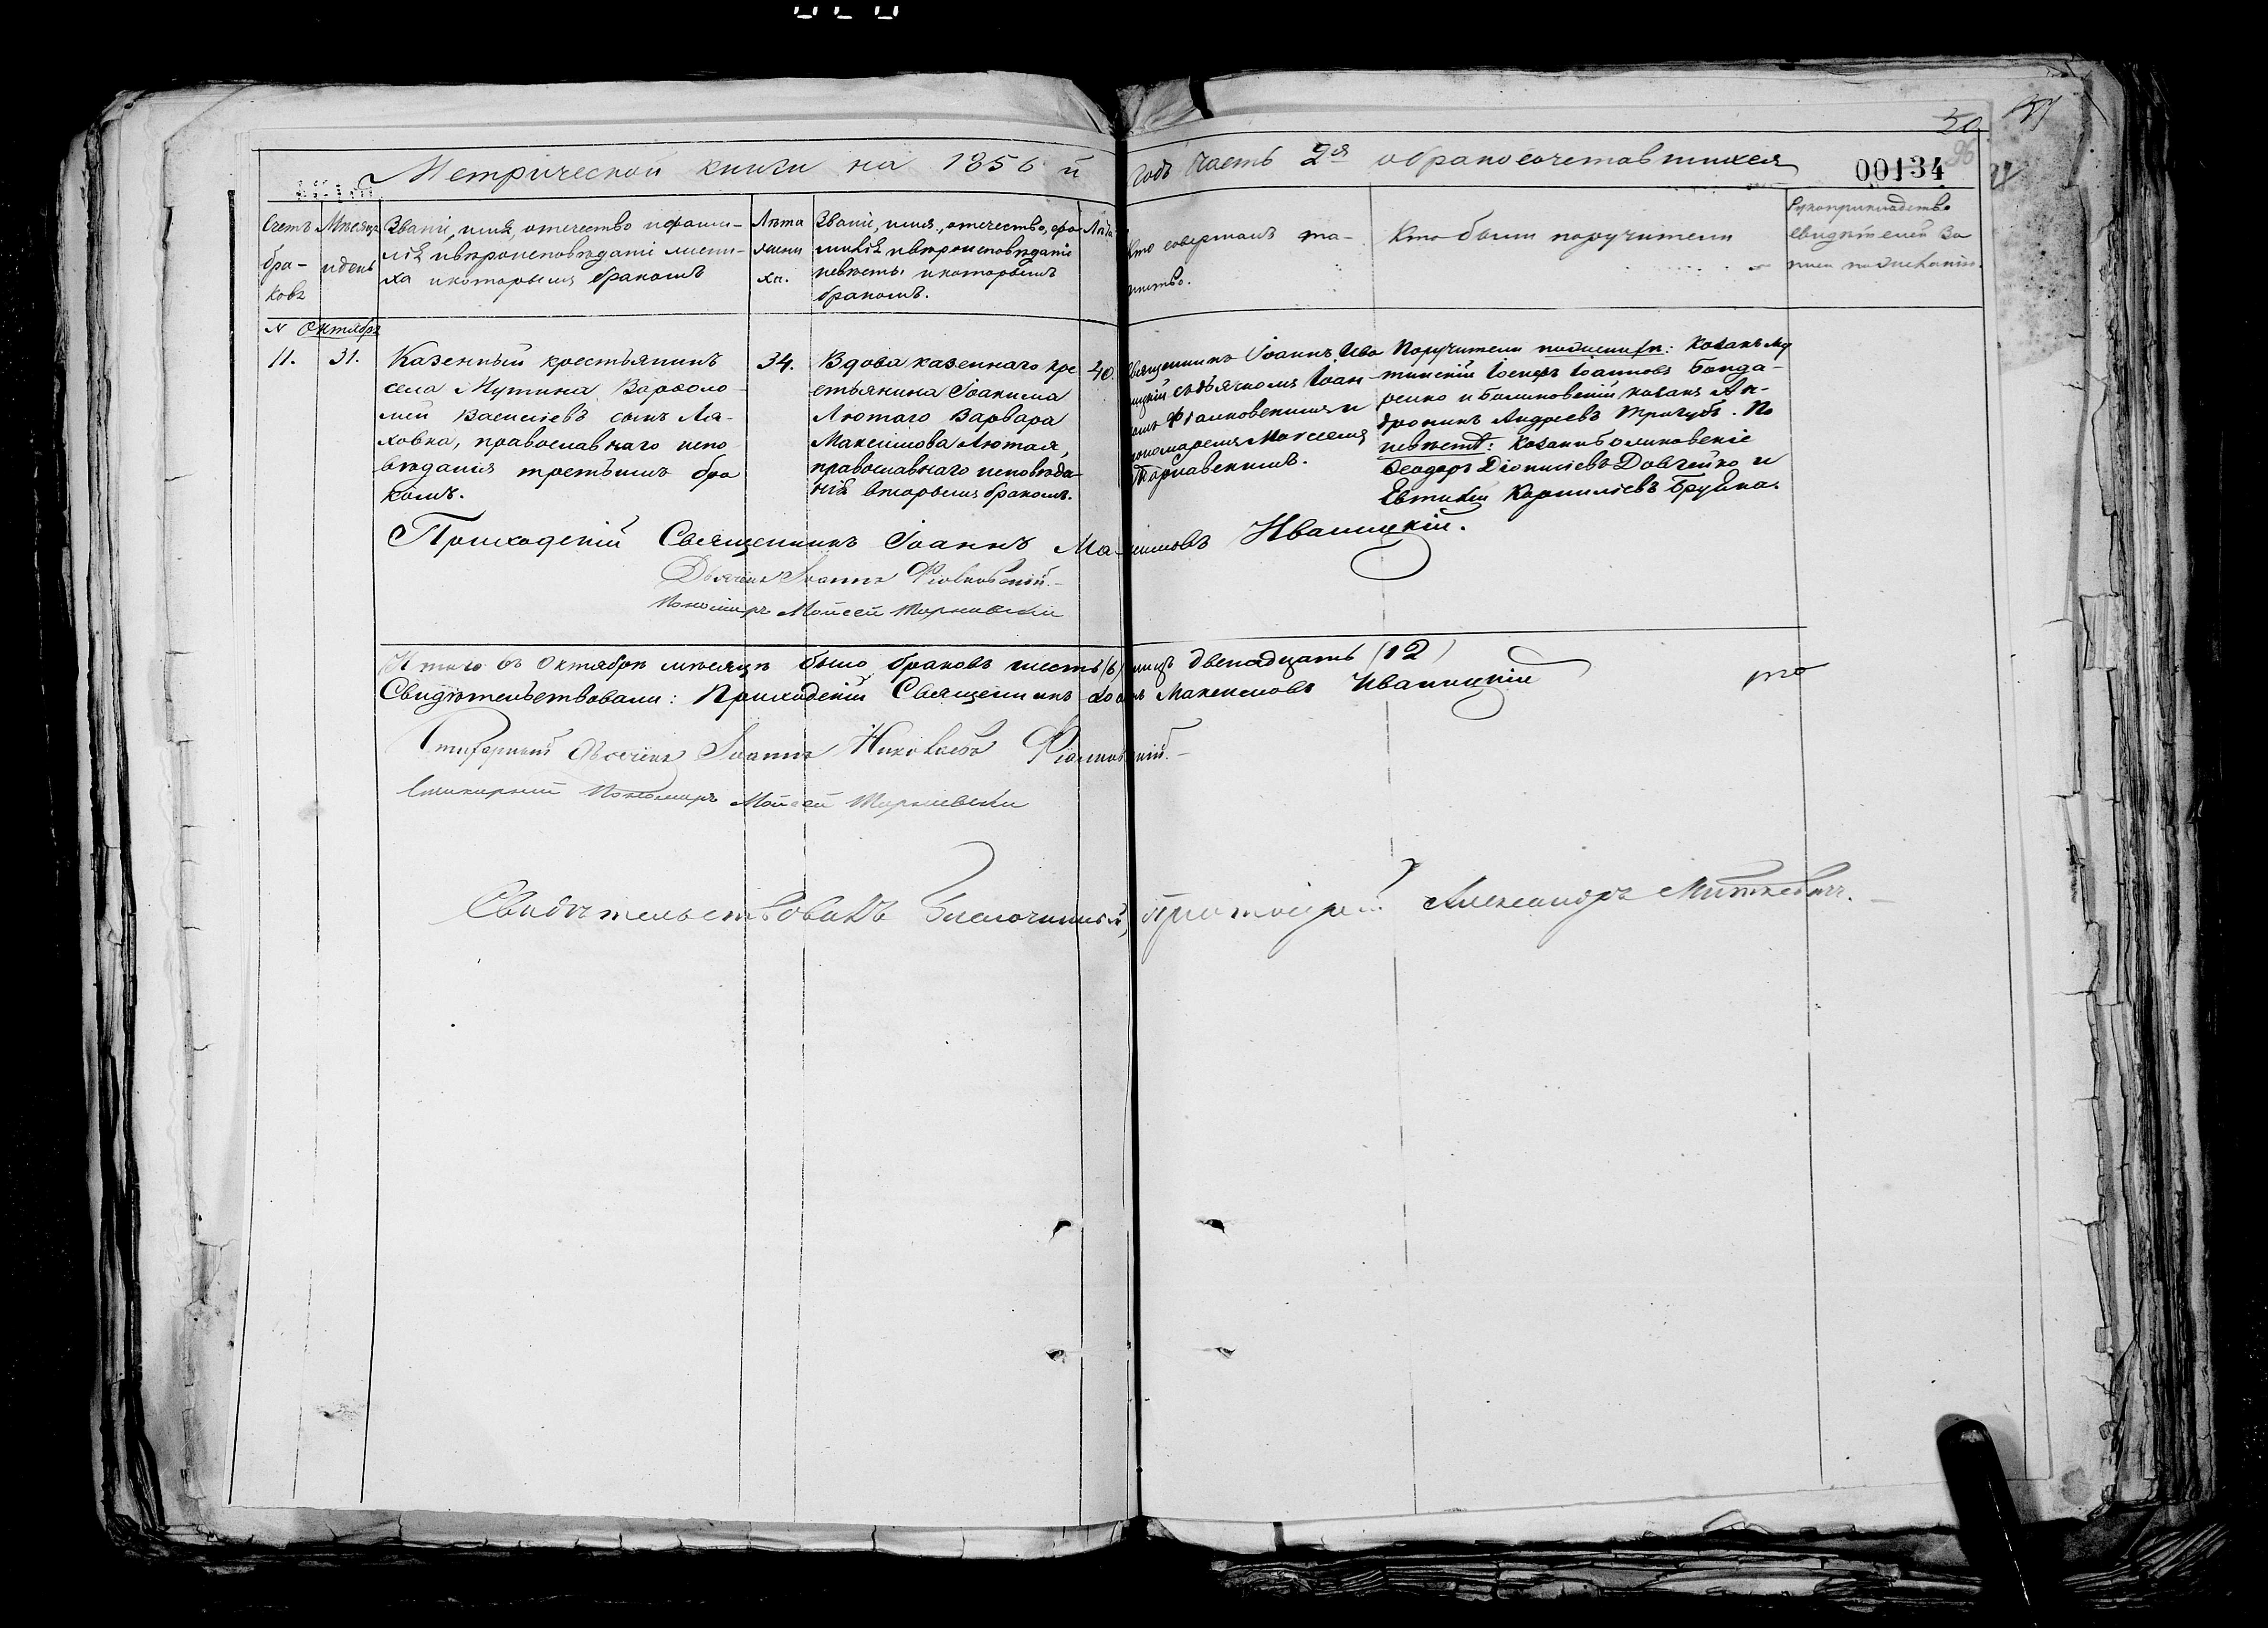 50
Метрической книги на 1856 й годъ Часть 2я о бракосочетавшихся
00134
96
Счетъ браковъ
Мѣсяцъ и день
Званіе, имя, отчество и фами-
лія и вѣроисповѣданіе жени-
ха и которымъ бракомъ
Лѣта
жени
ха.
Званіе, имя, отчество, фа
милія и вѣроисповѣданіе
невѣсты и которымъ
бракомъ.
Лѣта
Кто совершалъ та-
инство.
Кто были поручители
Рукоприкладство
свидѣтелей За
писи по желанію.
N Октябрь
11.
31.
Казенный крестьянинъ
села Мутина Варѳоло-
мей Васильевъ сынъ Ля-
ховка, православнаго испо
вѣданія третьимъ бра
комъ.
34.
Вдова казеннаго кре
стьянина Іоакима
Лютаго Варвара
Максимова Лютая,
православнаго исповѣда-
нія вторымъ бракомъ.
40.
Священникъ Іоаннъ Ива
ницкій съ дьячкомъ Іоан
номъ Фіалковскимъ и
пономаремъ Моисеемъ
Тарнавскимъ.
Поручители по женихѣ: козакъ Му
тинскій Іосифъ Іоанновъ Бонда-
ренко и козакъ Ан-
дроникъ Андреевъ Тригубъ. По
невѣстѣ: козаки
Ѳеодоръ Діонисіевъ Довгейко и
Евтихій Корниліевъ
Приходскій Священникъ Іоаннъ Максимовъ Иваницкій.
Дьячекъ Іоаннъ Фіалковскій.
Пономарь Мойсей Тарнавскій
Итого въ Октябрѣ мѣсяцѣ было браковъ шесть (6) лицъ двенадцать (12)
Свидѣтельствовали: Приходскій Священникъ Іоаннъ Максимовъ Иваницкій
Дьячекъ Іоаннъ Николаевъ Фіалковскій.
Пономарь Мойсей Тарнавскій
Свидѣтельствовалъ Благочинный, Протоіерей Александръ Миткевичъ.